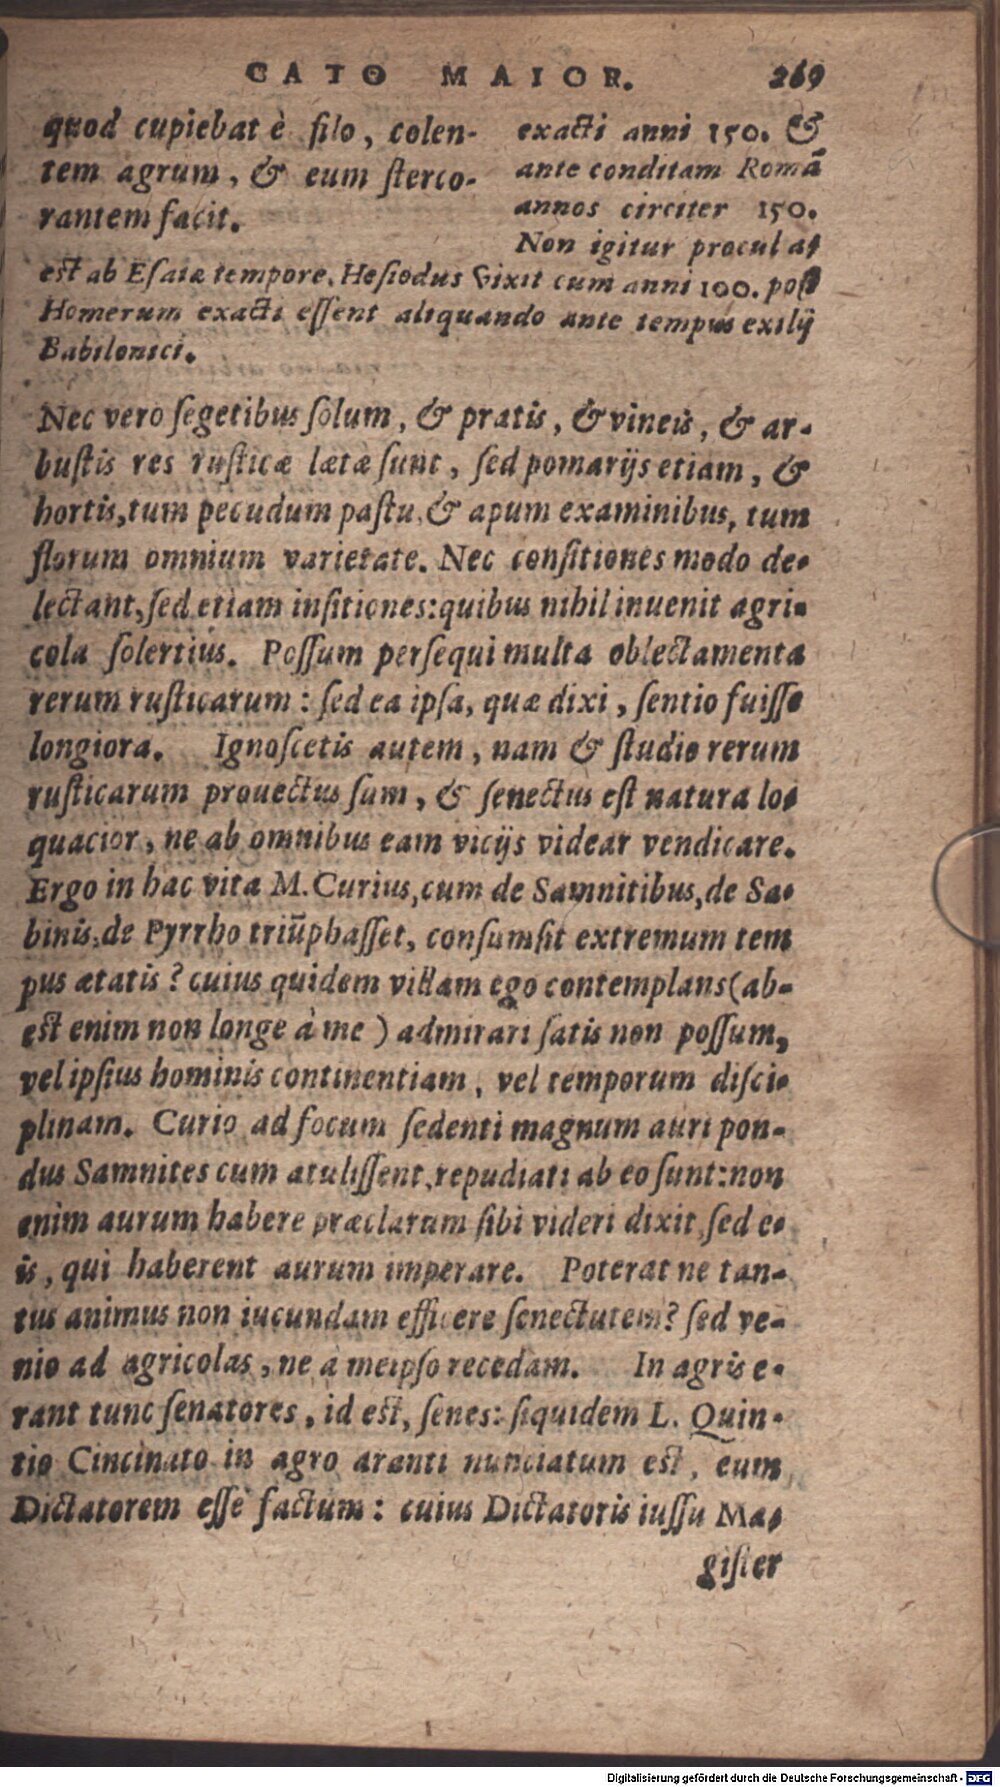 CATO MAIOR. 269
quod cupiebat è filo, colen-
tem agrum, & eum sterco-
rantem facit.
exacti anni 150. &
ante conditam Romã
annos circiter 150.
Non igitur procul at
est ab Esaiæ tempore. Hesiodus vixit cum anni 100. post
Homerum exacti essent aliquando ante tempus exilij
Babilonici.
Nec vero segetibus solum, & pratis, & vineis, & ar-
bustis res rusticæ lætæ sunt, sed pomarijs etiam, &
hortis, tum pecudum pastu, & apum examinibus, tum
florum omnium varietate. Nec consitiones modo de-
lectant, sed etiam insitiones: quibus nihil inuenit agri-
cola solertius. Possum persequi multa oblectamenta
rerum rusticarum: sed ea ipsa, quæ dixi, sentio fuisse
longiora. Ignoscetis autem, nam & studio rerum
rusticarum prouectus sum, & senectus est natura lo-
quacior, ne ab omnibus eam vicijs videar vendicare.
Ergo in hac vita M. Curius, cum de Samnitibus, de Sa-
binis, de Pyrrho triũphasset, consumsit extremum tem
pus ætatis? cuius quidem villam ego contemplans (ab-
est enim non longe à me) admirari satis non possum,
vel ipsius hominis continentiam, vel temporum disci-
plinam. Curio ad focum sedenti magnum auri pon-
dus Samnites cum atulissent, repudiati ab eo sunt: non
enim aurum habere præclarum sibi videri dixit, sed e-
is, qui haberent aurum imperare. Poterat ne tan-
tus animus non iucundam efficere senectutem? sed ve-
nio ad agricolas, ne à meipso recedam. In agris e-
rant tunc senatores, id est, senes: siquidem L. Quin-
tio Cincinato in agro aranti nunciatum est, eum
Dictatorem esse factum: cuius Dictatoris iussu Ma-
gister
Digitalisierung gefördert durch die Deutsche Forschungsgemeinschaft - DFG